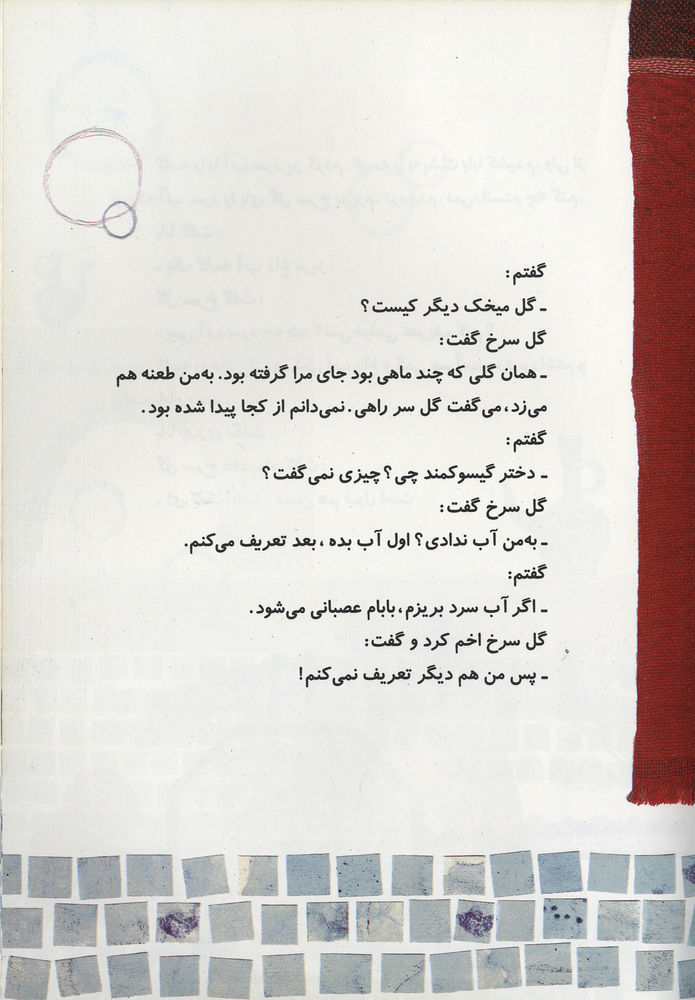 گفتم:
ـ گل میخک دیگر کیست؟
گل سرخ گفت:
ـ همان گلی که چند ماهی بود جای مرا گرفته بود. به‌من طعنه هم
می‌زد، می‌گفت گل سر راهی. نمی‌دانم از کجا پیدا شده بود.
گفتم:
ـ دختر گیسوکمند چی؟ چیزی نمی‌گفت؟
گل سرخ گفت:
ـ به‌من آب ندادی؟ اول آب بده ، بعد تعریف می‌کنم.
گفتم:
ـ اگر آب سرد بریزم، بابام عصبانی می‌شود.
گل سرخ اخم کرد و گفت:
ـ پس من هم دیگر تعریف نمی‌کنم!